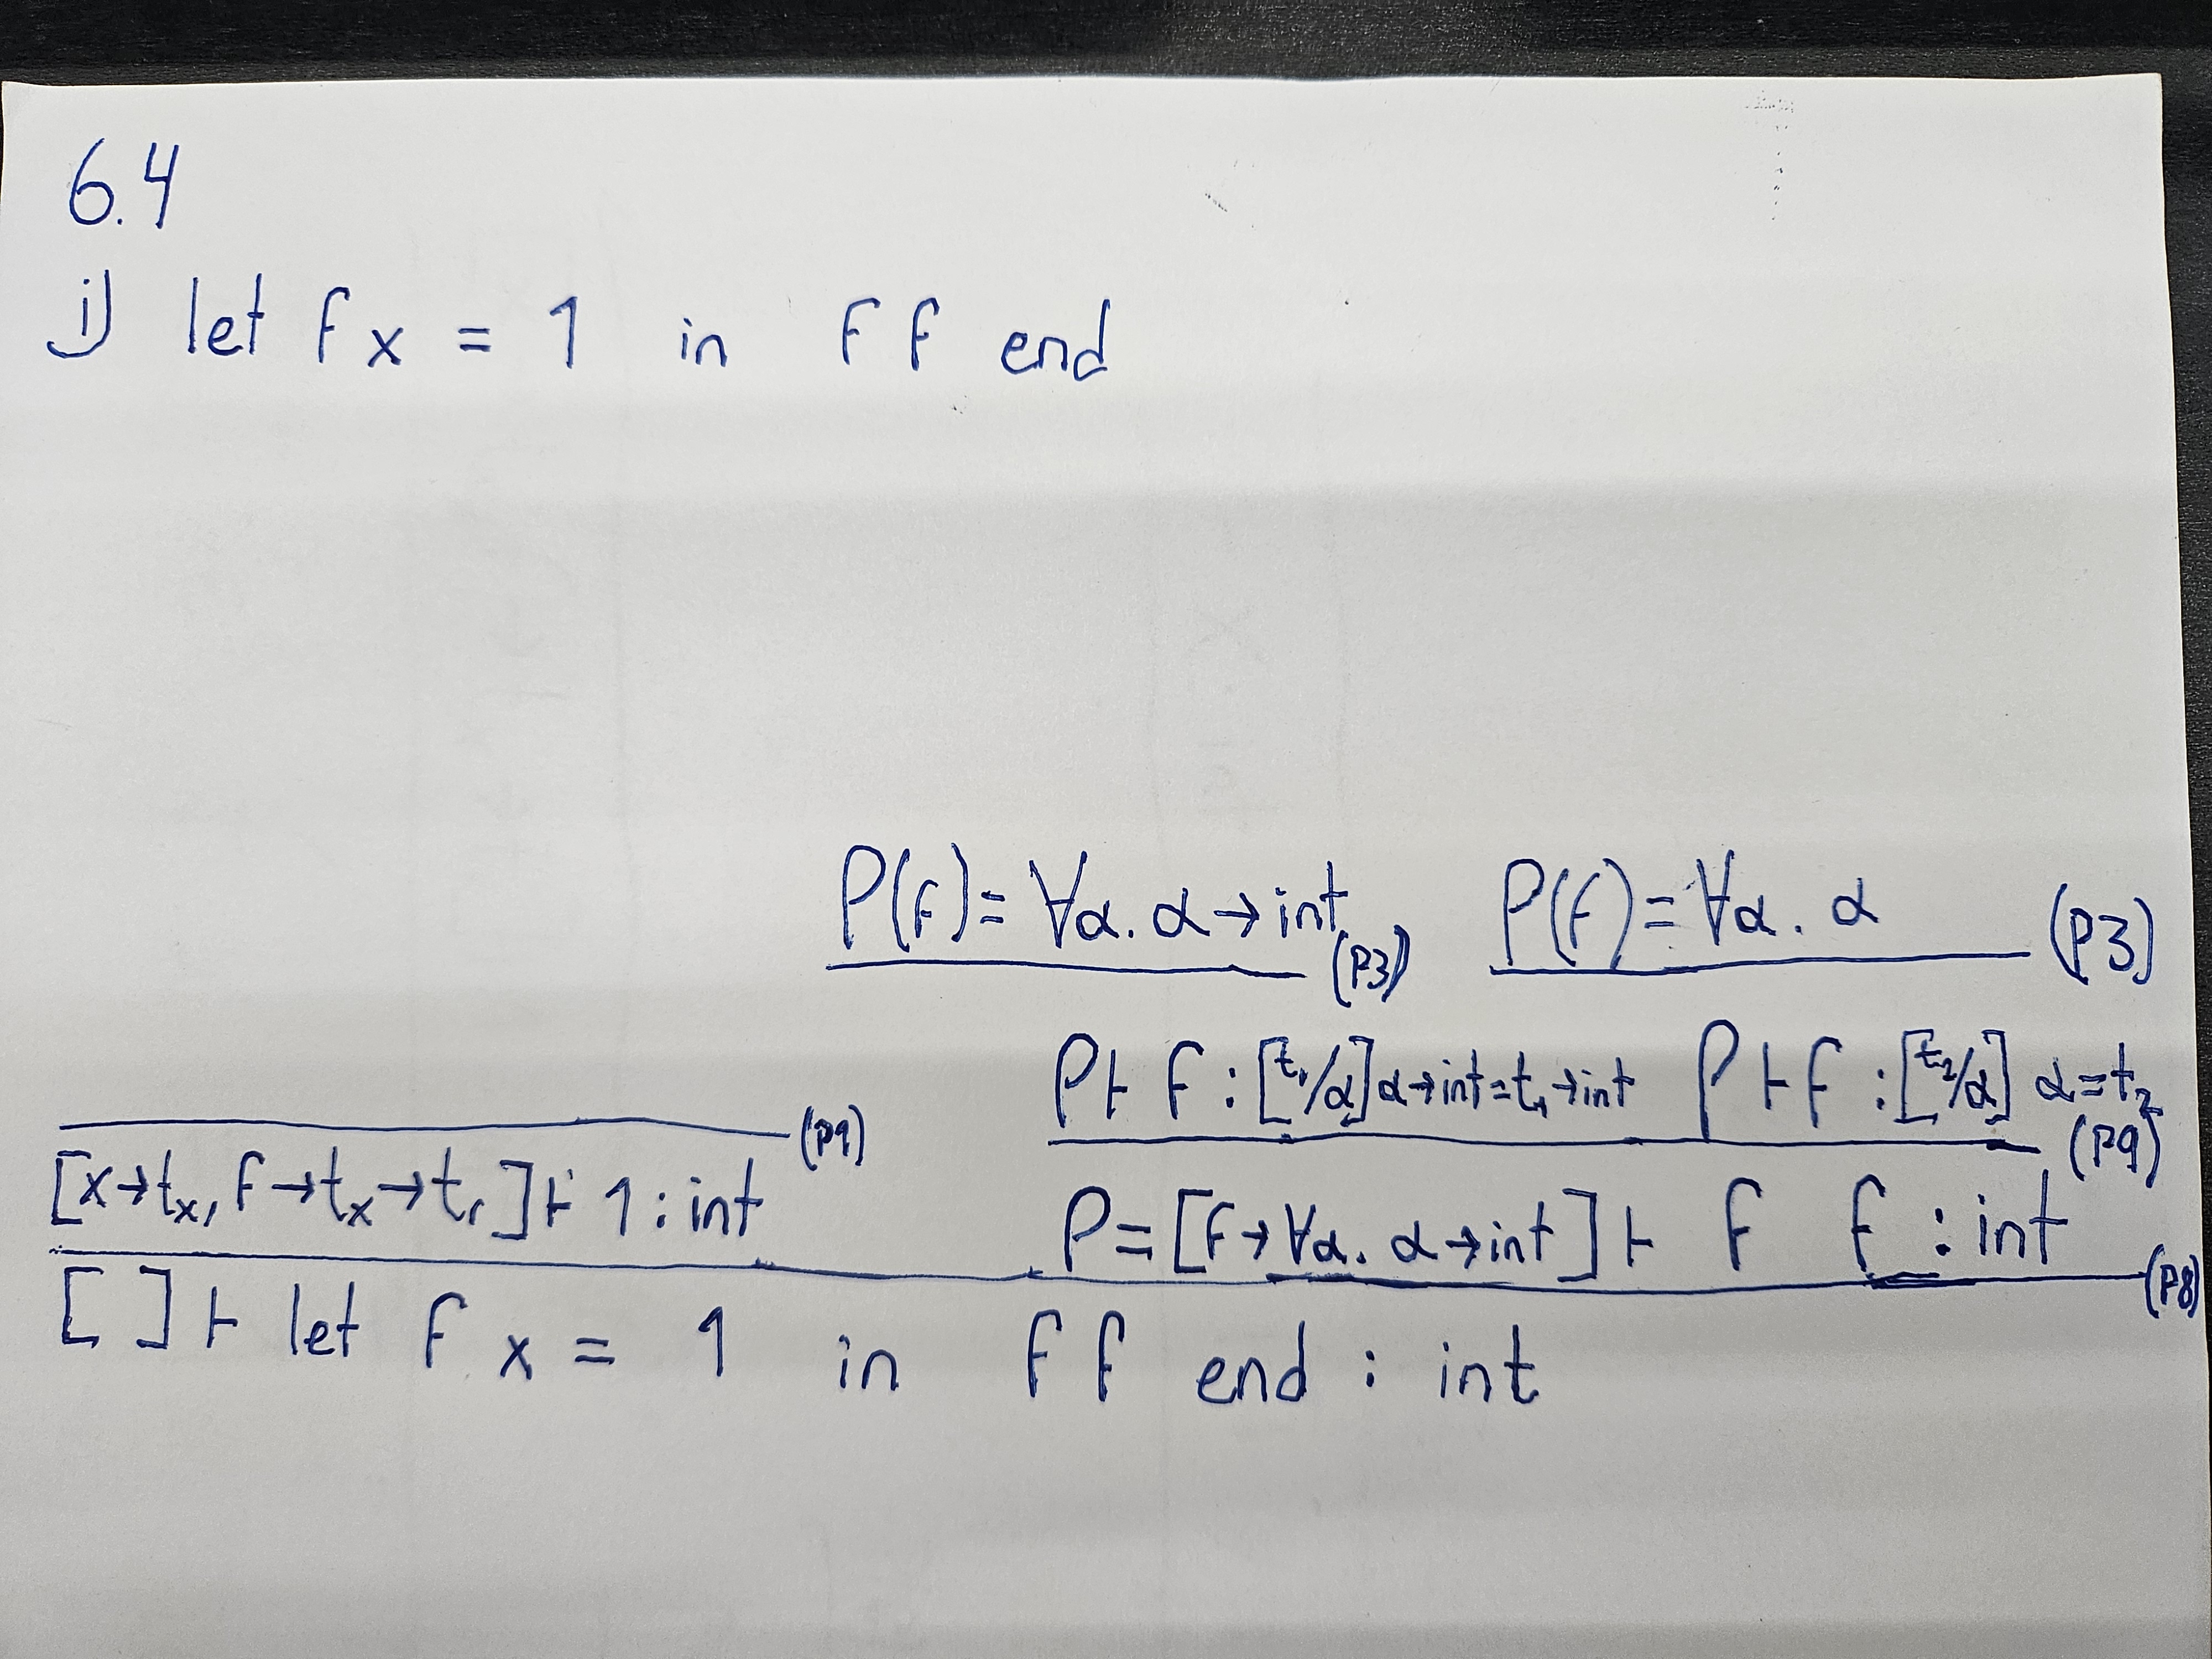 6.4
i) let f x = 1 in f f end
ρ(f) = ∀α. α → int (p3) ρ(f) = ∀α. α (p3)
ρ ⊢ f : [t₁/α] α → int = t₁ → int ρ ⊢ f : [t₂/α] α = t₂
(p1) (p9)
[x → tₓ, f → tₓ → tᵣ] ⊢ 1 : int ρ = [f → ∀α. α → int] ⊢ f f : int
(p8)
[ ] ⊢ let f x = 1 in f f end : int